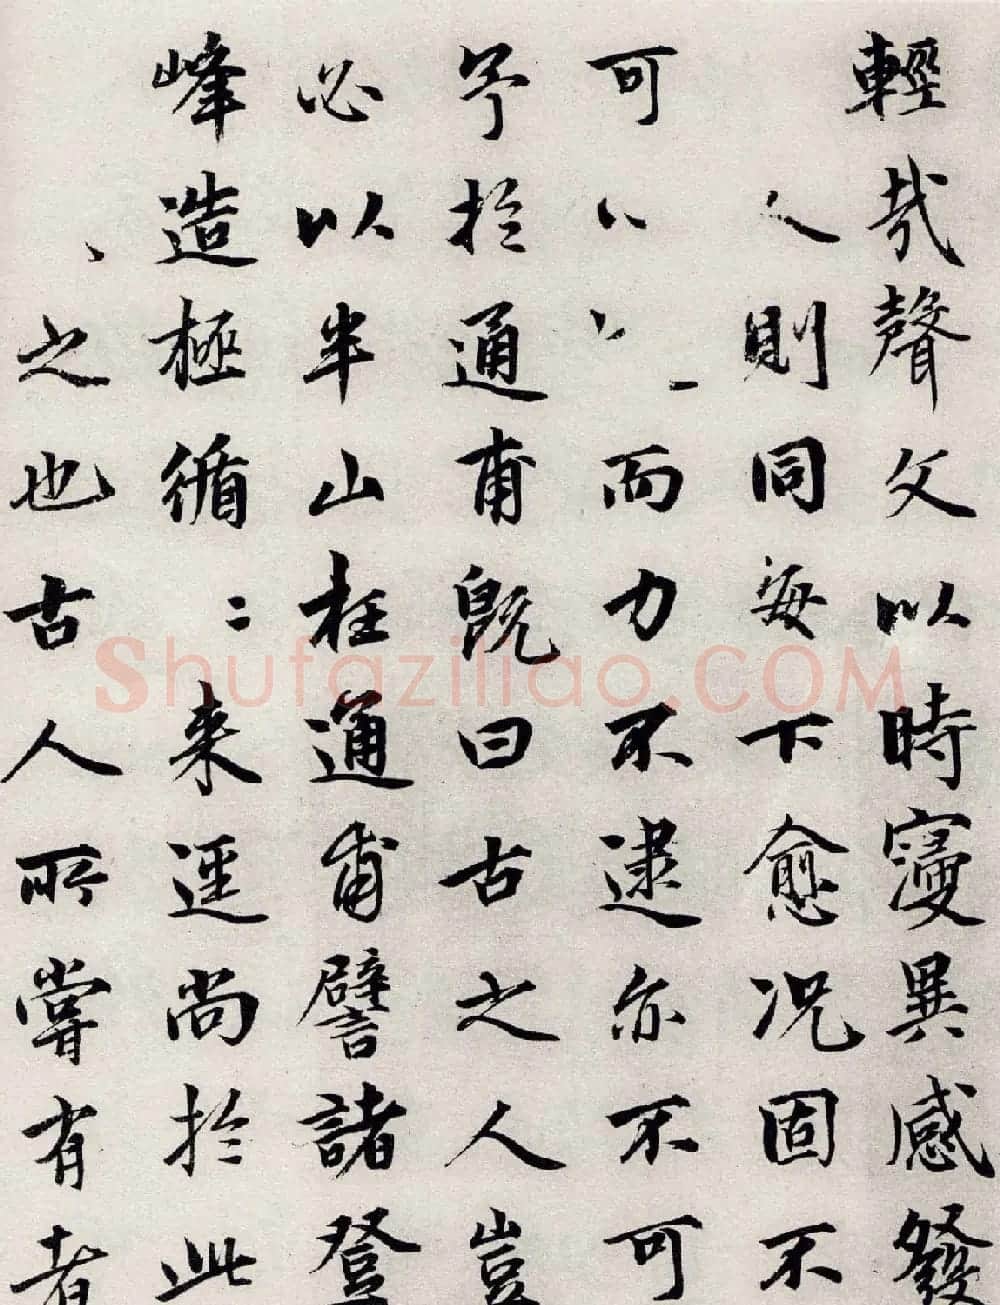 輕哉聲文以時變異感發
人則同每下愈况固不
可而力不逮亦不可
予於通甫既曰古之人豈
必以半山枉通甫譬諸登
峰造極循〻来逕尚於此
之也古人所嘗有者
Shufaziliao.COM